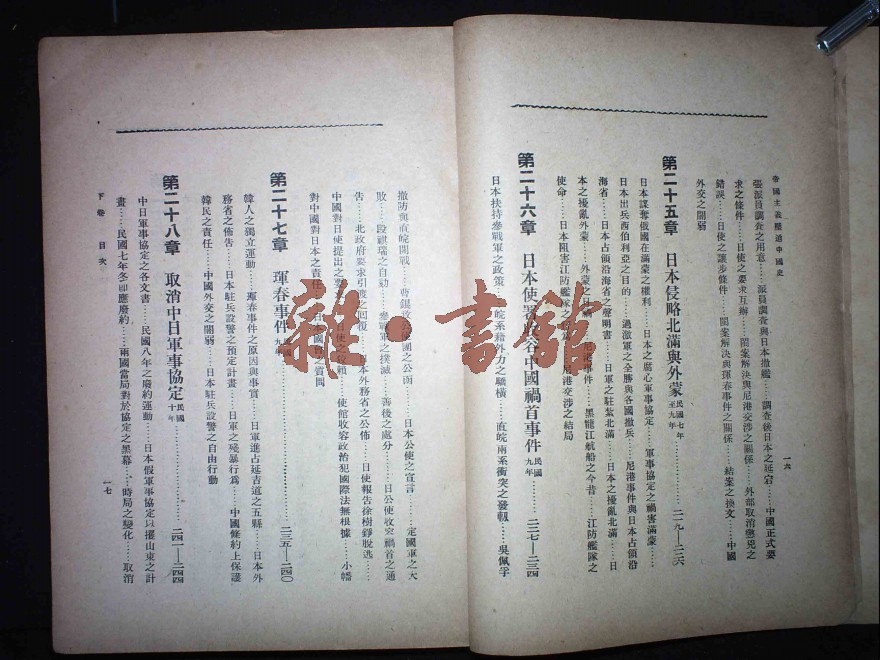 帝國主義壓迫中國史
一六
張派員調查之用意……派員調查與日本撤艦……調查後日本之延宕……中國正式要
求之條件……日使之要求互辦……閩案解決與尼港交涉之關係……外部取消懲兇之
錯誤……日使之讓步條件……閩案解決與琿春事件之關係……結案之換文……中國
外交之闇弱
第二十五章 日本侵略北滿與外蒙 民國七年至九年……二一九—二二六
日本謀奪俄國在滿蒙之權利……日本之處心軍事協定……軍事協定之禍害滿蒙……
日本出兵西伯利亞之目的……過激軍之全勝與各國撤兵……尼港事件與日本占領沿
海省……日本占領沿海省之聲明書……日軍之駐紮北滿……日本之擾亂北滿……日
本之擾亂外蒙……外蒙之……尼港事件……黑龍江航船之今昔……江防艦隊之
使命……日本阻害江防艦隊之……尼港交涉之結局
第二十六章 日本使署收容中國禍首事件 民國九年……二二七—二三四
日本扶持參戰軍之政策……皖系藉外力之驕橫……直皖兩系衝突之發軔……吳佩孚
撤防與直皖開戰……曹錕……之公函……日本公使之宣言……定國軍之大
敗……段祺瑞之自劾……參戰軍之撲滅……善後之處分……日公使收容禍首之通
告……北政府要求引渡之回復……日本外務省之公佈……日使報告徐樹錚脫逃……
中國對日使提出之要……日使之……賴……使館收容政治犯國際法無根據……小幡
對中國對日本之責任……日本國會之質問
第二十七章 琿春事件 民國九年……二三五—二四〇
韓人之獨立運動……琿春事件之原因與事實……日軍進占延吉道之五縣……日本外
務省之佈告……日本駐兵設警之預定計畫……日軍之殘暴行為……中國條約上保護
韓民之責任……中國外交之闇弱……日本駐兵設警之自由行動
第二十八章 取消中日軍事協定 民國十年……二四一—二四四
中日軍事協定之各文書……民國八年之廢約運動……日本假軍事協定以攫山東之計
畫……民國七年冬即應廢約……兩國當局對於協定之黑幕……時局之變化……取消
下卷 目次
一七
雜·書館